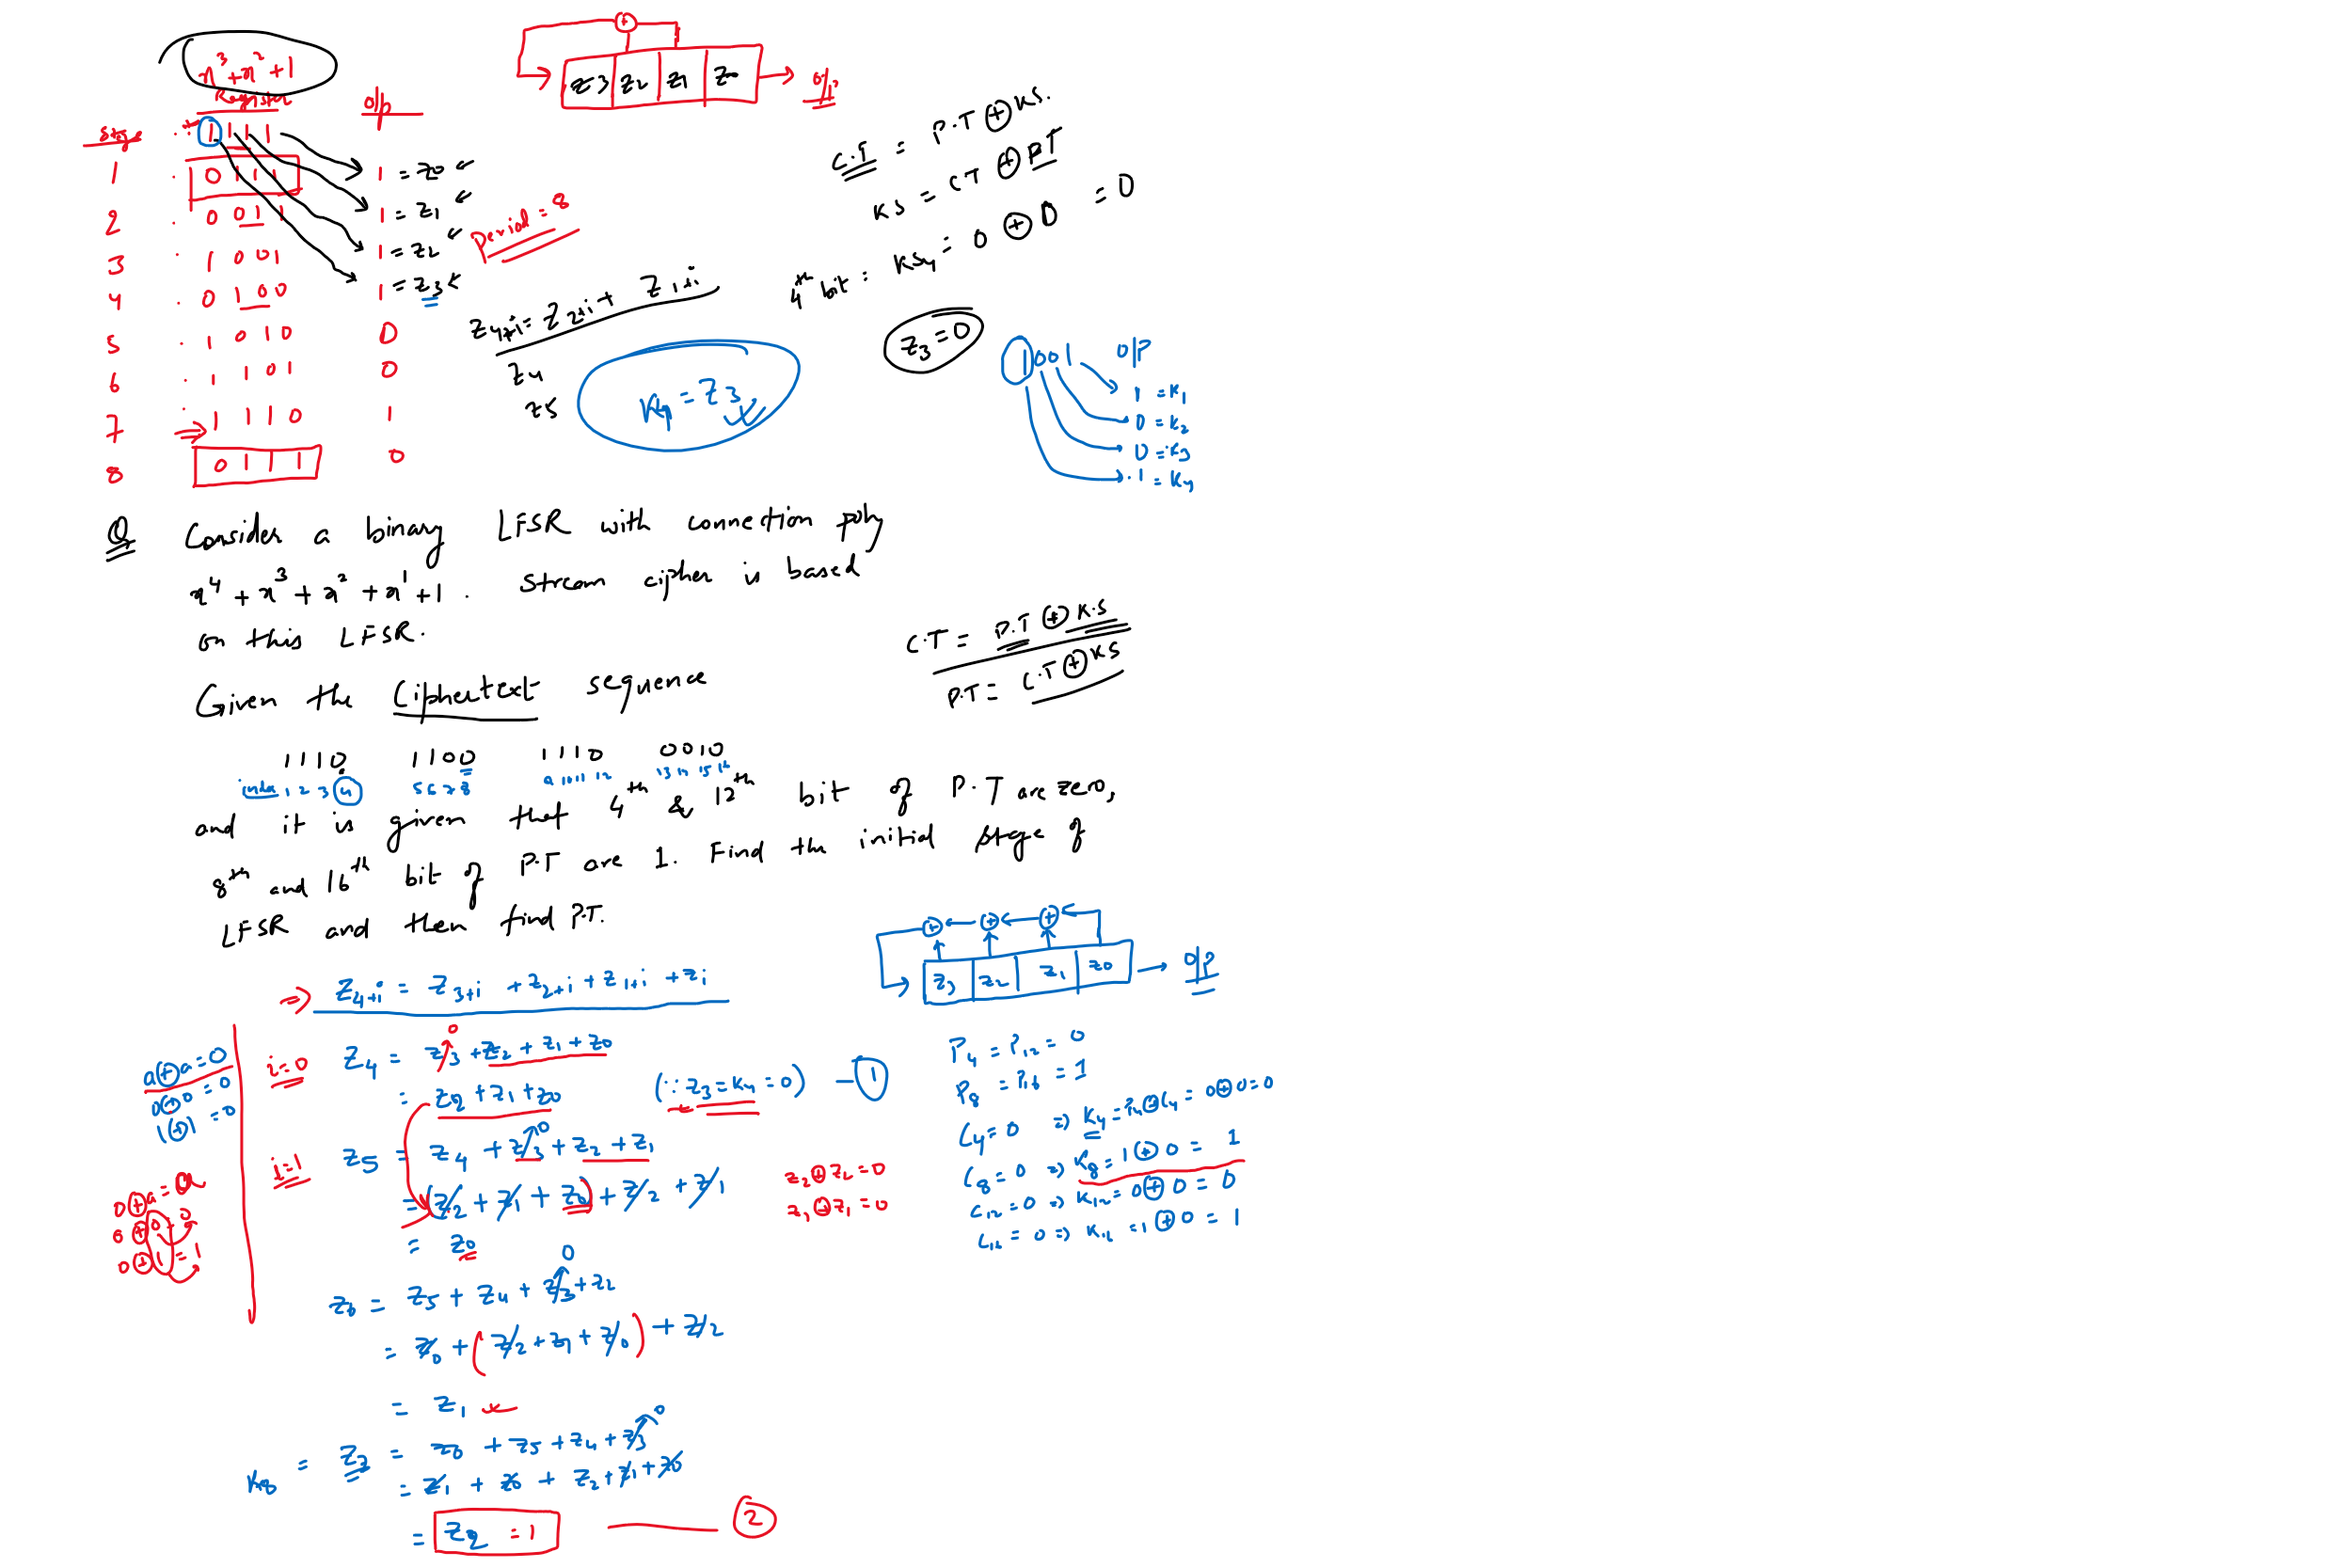 x³+x²+1
Register
Stage
o/p
1 1 1 1
1 0 1 1 1 1 = z0
2 0 0 1 1 1 = z1
3 1 0 0 1 1 = z2
4 0 1 0 0 1 = z3
5 1 0 1 0 0
6 1 1 0 1 0
7 1 1 1 0 1
8 0 1 1 1 0
Period = 8
+
z3 z2 z1 z0
o/p
C.T = P.T ⊕ KS.
KS = CT ⊕ PT
4th bit : KS4 = 0 ⊕ 0 = 0
z3 = 0
Z4+i = Z2+i + Z1+i
z4
z5
K4 = Z3
1001 O/P
1 = K1
0 = K2
0 = K3
1 = K4
Q Consider a binary LFSR with connection poly
x⁴ + x³ + x² + x¹ + 1 . Stream cipher is based
on this LFSR.
C.T = P.T ⊕ K.S
P.T = C.T ⊕ KS
Given the Ciphertext sequence
1110 1100 1110 0010
index 1 2 3 4 5 6 7 8 9 10 11 12 13 14 15 16
and it is given that 4th & 12th bit of P.T are zero,
8th and 16th bit of P.T are 1. Find the initial stage of
LFSR and then find P.T.
+ + +
z3 z2 z1 z0
O/P
⇒ Z4+i = Z3+i + Z2+i + Z1+i + Zi
a⊕a=0
0⊕0=0
1⊕1=0
0⊕a=a
0⊕0=0
0⊕1=1
i=0 Z4 = Z3 + Z2 + Z1 + Z0
0
= Z2 + Z1 + Z0 (∵ Z3 = K4 = 0) — 1
i=1 Z5 = Z4 + Z3 + Z2 + Z1
0
= (Z2 + Z1 + Z0) + Z2 + Z1
= Z0
z2⊕z2=0
z1⊕z1=0
Z6 = Z5 + Z4 + Z3 + Z2
0
= Z0 + (Z2 + Z1 + Z0) + Z2
= Z1
K8 = Z7 = Z6 + Z5 + Z4 + Z3
0
= Z1 + Z0 + Z2 + Z1 + Z0
= Z2 = 1 — 2
P4 = P12 = 0
P8 = P16 = 1
C4 = 0 ⇒ K4 = P4⊕C4 = 0⊕0=0
C8 = 0 ⇒ K8 = 1⊕0 = 1
C12 = 0 ⇒ K12 = 0⊕0 = 0
C16 = 0 ⇒ K16 = 1⊕0 = 1